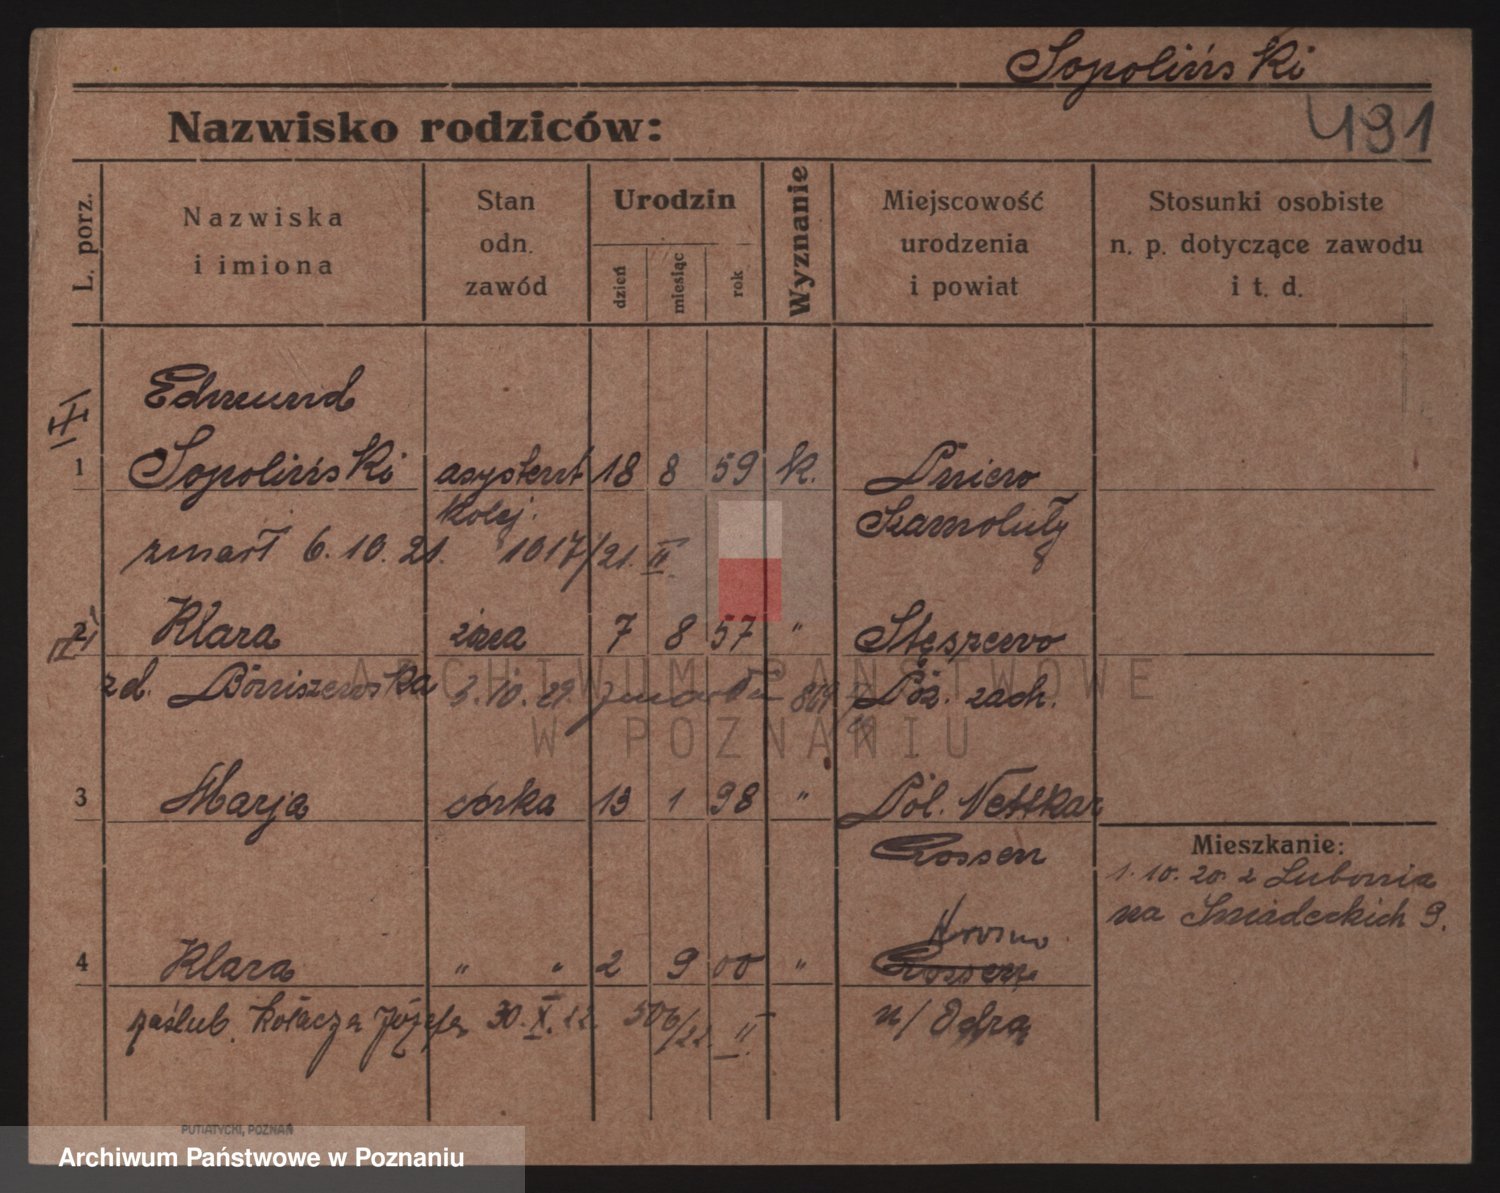 Sopoliński
491
Nazwisko rodziców:
L. porz.
Nazwiska
i imiona
Stan
odn.
zawód
Urodzin
dzień
miesiąc
rok
Wyznanie
Miejscowość
urodzenia
i powiat
Stosunki osobiste
n. p. dotyczące zawodu
i t. d.
Edmund
1 Sopoliński asystent 18 8 59 k. Pniewo
kolej. Szamotuły
zmarł 6.10.21. 1017/21. II.
2 Klara żona 7 8 57 " Stęszewo
zd. Boniszewska 3.10.29. zmarła Poz. zach.
3 Marja córka 13 1 98 " Pol. Nettkow
Crossen
Mieszkanie:
1.10.20 z Lubonia
na Śniadeckich 9.
4 Klara " " 2 9 00 " Crossen
n/Odrą
zaślub. Kołacza Józefa 30.X.22. 506/22 II
PUTIATYCKI, POZNAŃ
ARCHIWUM PAŃSTWOWE
W POZNANIU
Archiwum Państwowe w Poznaniu